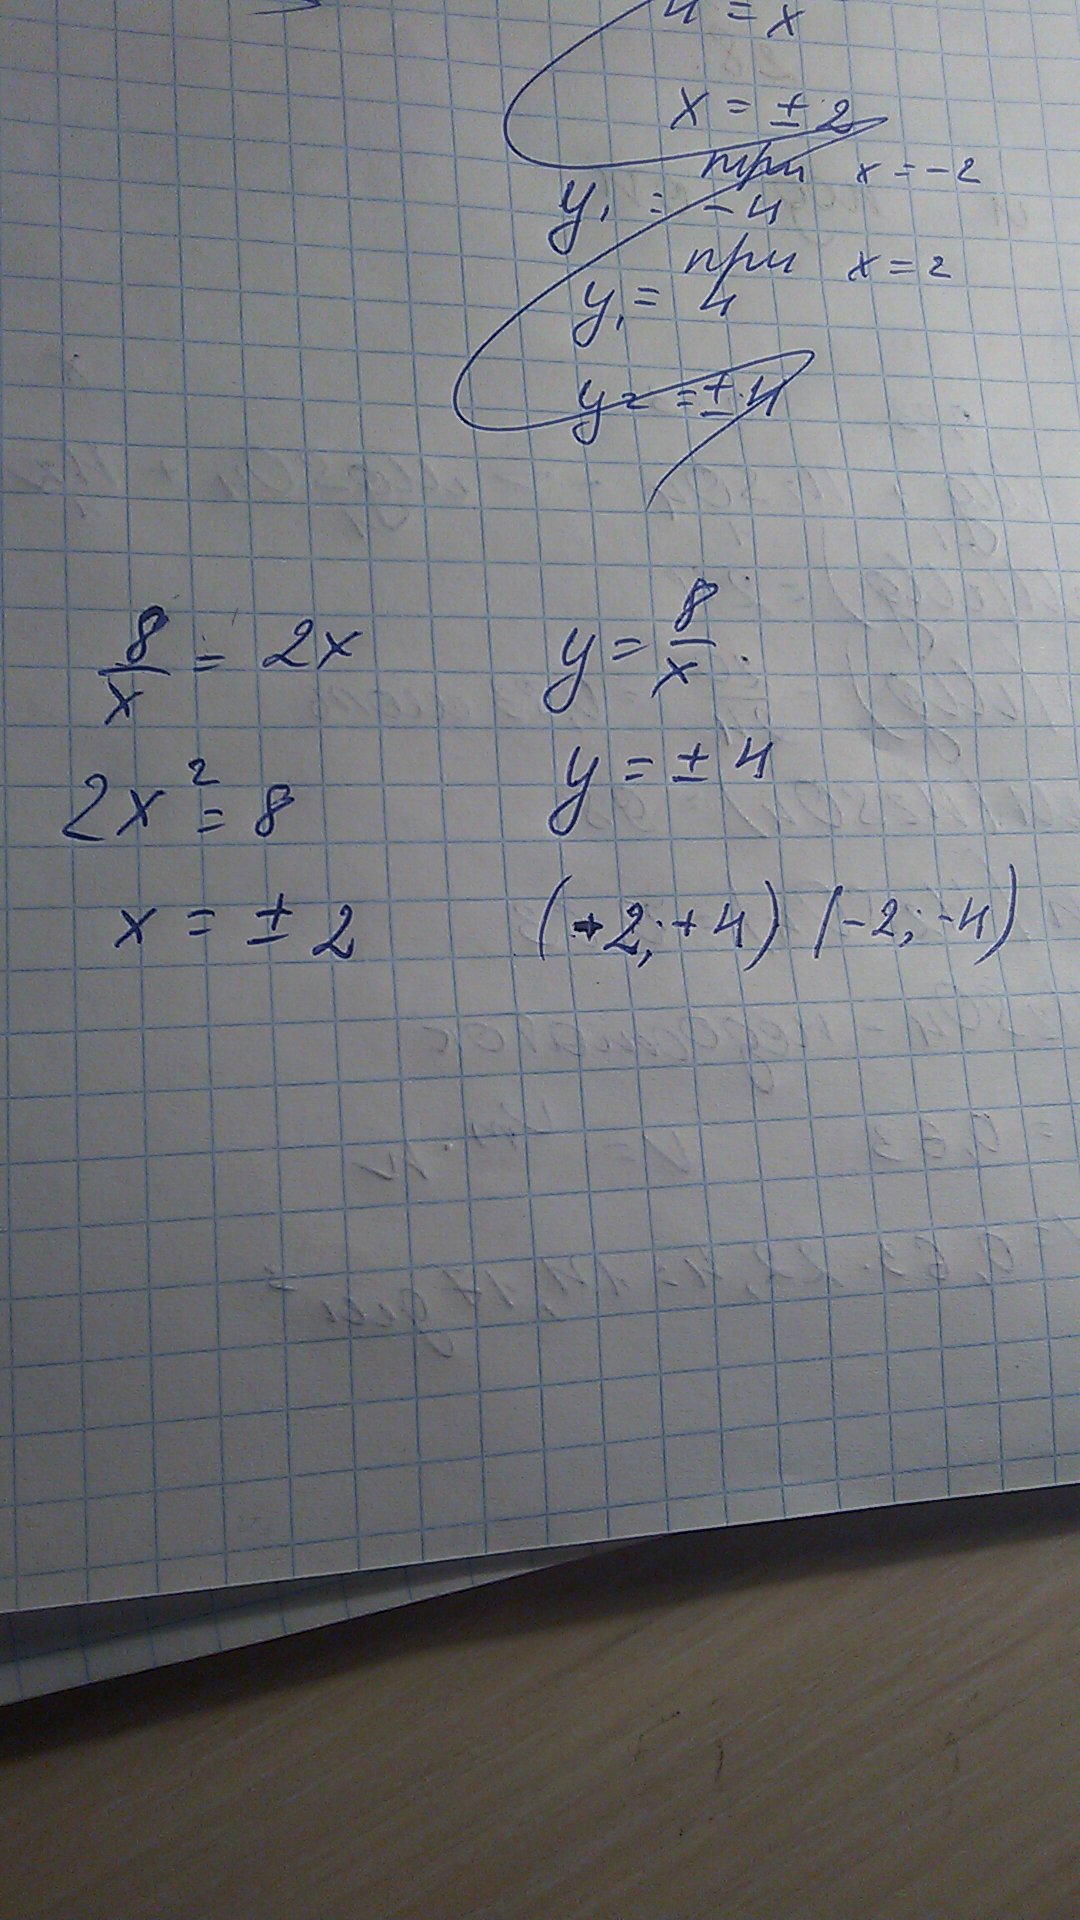 4 = x
x = ± 2
при x = -2
y₁ = -4
при x = 2
y₁ = 4
y₂ = ± 4
8/x = 2x
y = 8/x
2x² = 8
y = ± 4
x = ± 2
(+2; +4) (-2; -4)